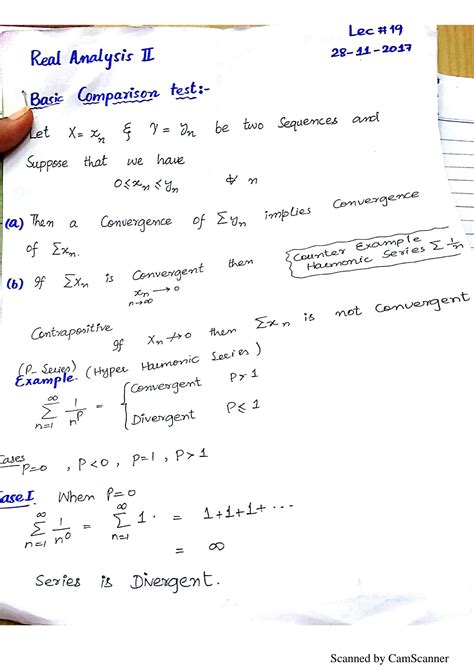 Lec #19
Real Analysis II
28-11-2017
Basic Comparison test:-
Let X = x_n & Y = y_n be two Sequences and
Suppose that we have
0 ≤ x_n ≤ y_n ∀ n
(a) Then a Convergence of Σy_n implies Convergence
of Σx_n.
(b) If Σx_n is Convergent then
x_n → 0
n→∞
Counter Example
Harmonic Series Σ 1/n
Contrapositive
If x_n ↛ 0 then Σx_n is not Convergent
(P-Series) (Hyper Harmonic Series)
Example.
∞ Σ n=1 1/n^p = { Convergent P>1
Divergent P ≤ 1
Cases
P=0 , P<0 , P=1 , P>1
Case I. When P=0
∞ Σ n=1 1/n^0 = ∞ Σ n=1 1 . = 1+1+1+ ...
= ∞
Series is Divergent.
Scanned by CamScanner